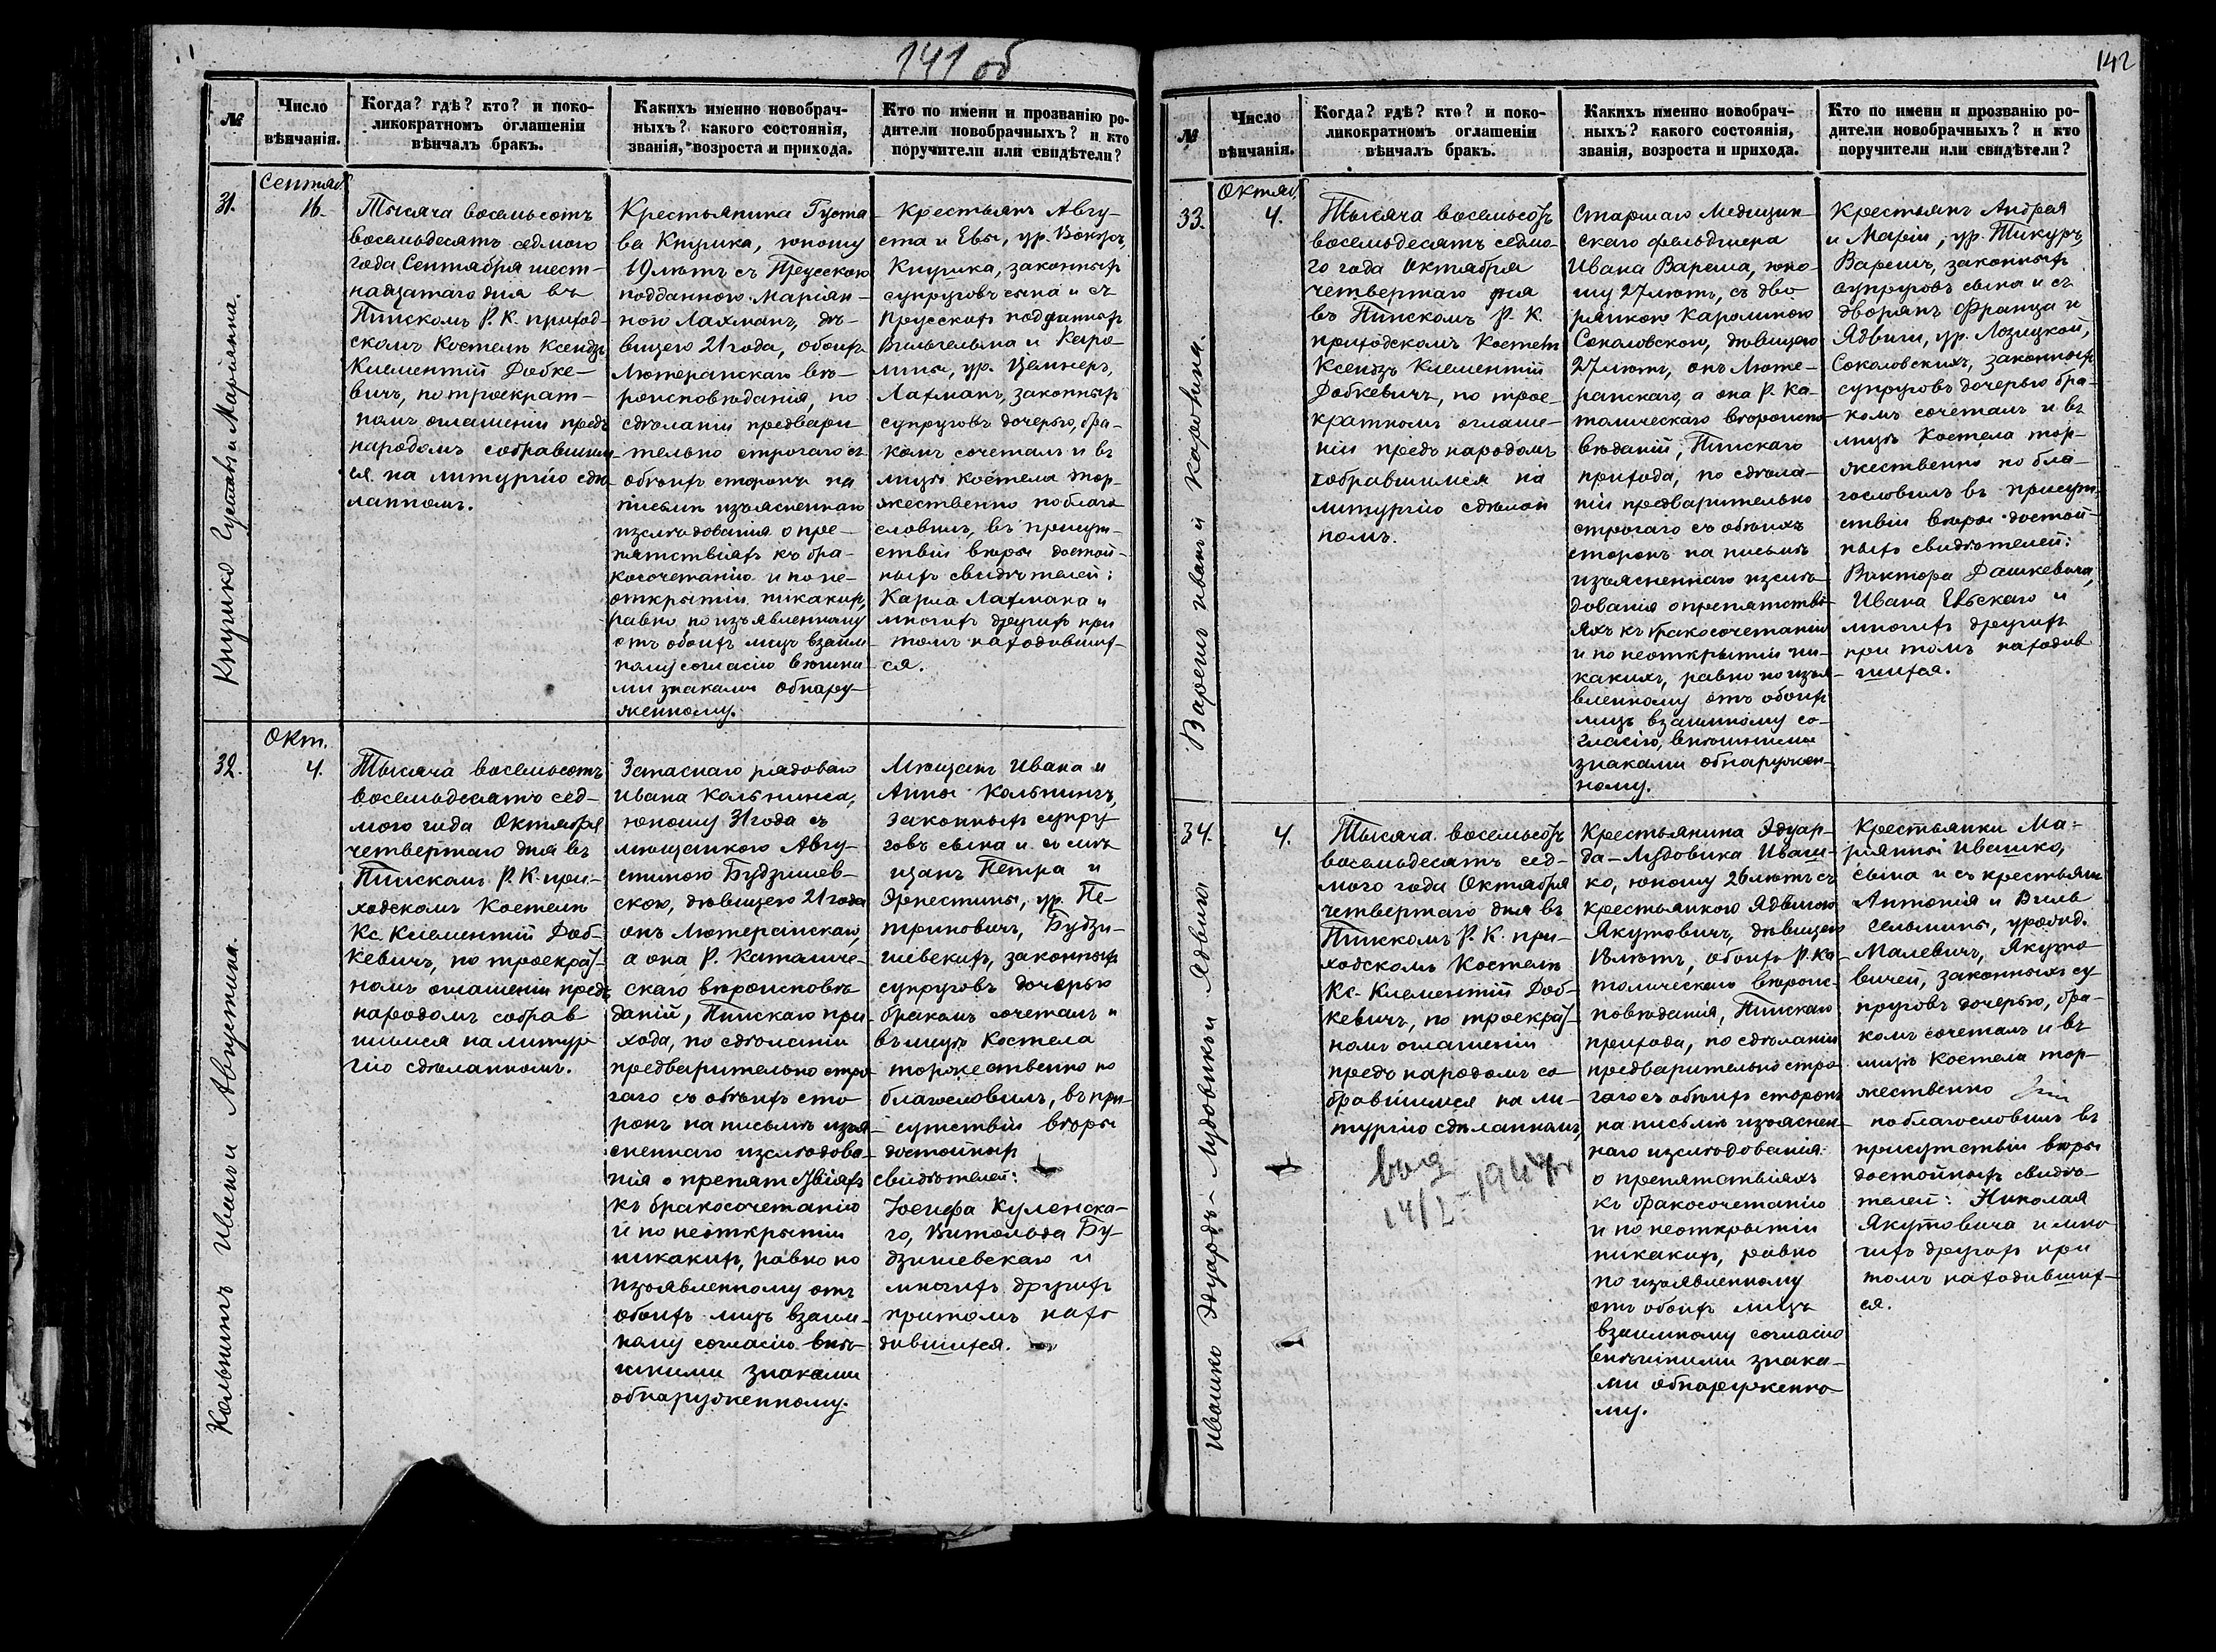 141 об
№
Число
вѣнчанія.
Когда? гдѣ? кто? и поко-
ликократномъ оглашеніи
вѣнчалъ бракъ.
Какихъ именно новобрач-
ныхъ? какого состоянія,
званія, возроста и прихода.
Кто по имени и прозванію ро-
дители новобрачныхъ? и кто
поручители или свидѣтели?
31.
Сентяб.
16.
Тысяча восемьсотъ
восемьдесятъ седмого
года Сентября шест-
надцатаго дня въ
Пинскомъ Р. К. приход-
скомъ Костелѣ Ксендзъ
Климентій Добке-
вичъ, по троекрат-
номъ оглашеніи предъ
народомъ собравшим-
ся на литургію сдѣ-
ланномъ.
Крестьянина Густа
ва Кнурика, юношу
19 лѣтъ съ Прусскою
подданною Маріян-
ною Лахманъ, дѣ-
вицею 21 года, обоихъ
Лютеранскаго вѣ-
роисповѣданія, по
сдѣланіи предвари
тельно строгаго съ
обѣихъ сторонъ на
письмѣ изъясненнаго
изслѣдованія о пре-
пятствіяхъ къ бра-
косочетанію и по не-
открытіи никакихъ,
равно по изъявленному
отъ обоихъ лицъ взаим-
ному согласію внѣшни
ми знаками обнару-
женному.
Крестьянъ Авгу-
ста и Евы, ур.
Кнурика, законныхъ
супруговъ сына и съ
Прусскихъ подданныхъ
Вильгельма и Каро-
лины, ур.
Лахманъ, законныхъ
супруговъ дочерью, бра-
комъ сочеталъ и въ
лицѣ костела тор-
жественно поблаго
словилъ, въ присут-
ствіи вѣры достой-
ныхъ свидѣтелей:
Карла Лахмана и
многихъ другихъ при
томъ находивших-
ся.
Кнурико Густавъ и Маріянна.
32.
Окт.
4.
Тысяча восемьсотъ
восемьдесятъ сед-
мого года Октября
четвертаго дня въ
Пинскомъ Р. К. при-
ходскомъ Костелѣ
Кс. Климентій Доб-
кевичъ, по троекрат-
номъ оглашеніи предъ
народомъ собрав
шимся на литур
гію сдѣланномъ.
Запаснаго рядоваго
Ивана Кольнинса,
юношу 31 года съ
мѣщанкою Авгу-
стиною Будзишев-
скою, дѣвицею 21 года
онъ Лютеранскаго,
а она Р. Католиче-
скаго вѣроисповѣ
даній, Пинскаго при-
хода, по сдѣланіи
предварительно стро-
гаго съ обѣихъ сто
ронъ на письмѣ изъя-
сненнаго изслѣдова-
нія о препятствіяхъ
къ бракосочетанію
и по неоткрытіи
никакихъ, равно по
изъявленному отъ
обоихъ лицъ взаим-
ному согласію внѣ-
шними знаками
обнаруженному.
Мѣщанъ Ивана и
Анны Кольнингъ,
законныхъ супру
говъ сына и съ мѣ
щанъ Петра и
Эрнестины, ур. Пе-
триновичъ, Будзи-
шевскихъ, законныхъ
супруговъ дочерью
бракомъ сочеталъ и
въ лицѣ Костела
торжественно по
благословилъ, въ при-
сутствіи вѣры
достойныхъ
свидѣтелей:
Іосифа Куленска-
го, Витольда Бу-
дзишевскаго и
многихъ другихъ
притомъ нахо
дившихся.
Кольнингъ Иванъ и Августина.
142
№
Число
вѣнчанія.
Когда? гдѣ? кто? и поко-
ликократномъ оглашеніи
вѣнчалъ бракъ.
Какихъ именно новобрач-
ныхъ? какого состоянія,
званія, возроста и прихода.
Кто по имени и прозванію ро-
дители новобрачныхъ? и кто
поручители или свидѣтели?
33.
Октяб.
4.
Тысяча восемьсотъ
восемьдесятъ седмо-
го года Октября
четвертаго дня
въ Пинскомъ Р. К.
приходскомъ Костелѣ
Ксендзъ Климентій
Добкевичъ, по трое-
кратномъ оглаше-
ніи предъ народомъ
собравшимся на
литургію сдѣлан
номъ.
Старшаго Медицин-
скаго фельдшера
Ивана Вареша, юно-
шу 27 лѣтъ, съ дво
рянкою Каролиною
Соколовскою, дѣвицею
27 лѣтъ, онъ Люте-
ранскаго, а она Р. Ка-
толическаго вѣроиспо-
вѣданій, Пинскаго
прихода, по сдѣла-
ніи предварительно
строгаго съ обѣихъ
сторонъ на письмѣ
изъясненнаго изслѣ-
дованія о препятстві-
яхъ къ бракосочетанію
и по неоткрытіи ни-
какихъ, равно по изъя-
вленному отъ обоихъ
лицъ взаимному со-
гласію, внѣшними
знаками обнаружен-
ному.
Крестьянъ Андрея
и Маріи, ур. Тикуръ,
Варешъ, законныхъ
супруговъ сына и съ
дворянъ Франца и
Ядвиги, ур. Лозицкой,
Соколовскихъ, законныхъ
супруговъ дочерью бра-
комъ сочеталъ и въ
лицѣ Костела тор-
жественно по бла-
гословилъ въ присут-
ствіи вѣры достой-
ныхъ свидѣтелей:
Виктора Дашкевича,
Ивана Евьскаго и
многихъ другихъ
при томъ находив
шихся.
Варешъ Иванъ и Каролина.
34.
4.
Тысяча восемьсотъ
восемьдесятъ сед-
мого года Октября
четвертаго дня въ
Пинскомъ Р. К. при-
ходскомъ Костелѣ
Кс. Климентій Доб-
кевичъ, по троекрат-
номъ оглашеніи
предъ народомъ со
бравшимся на ли-
тургію сдѣланномъ,
14/2-194
Крестьянина Эдуар-
да-Лудовика Иваш-
ко, юношу 26 лѣтъ съ
крестьянкою Ядвигою
Якутовичъ, дѣвицею
18 лѣтъ, обоихъ Р. Ка-
толическаго вѣроис-
повѣданія, Пинскаго
прихода, по сдѣланіи
предварительно стро-
гаго съ обѣихъ сторонъ
на письмѣ изъяснен-
наго изслѣдованія
о препятствіяхъ
къ бракосочетанію
и по неоткрытіи
никакихъ, равно
по изъявленному
отъ обоихъ лицъ
взаимному согласію
внѣшними знака-
ми обнаруженно-
му.
Крестьянки Ма-
ріянны Ивашко,
сына и съ крестьянъ
Антонія и Виль
гельмины, урожд.
Малевичъ, Якуто
вичей, законныхъ су-
пруговъ дочерью, бра-
комъ сочеталъ и въ
лицѣ Костела тор-
жественно
поблагословилъ въ
присутствіи вѣры
достойныхъ свидѣ-
телей: Николая
Якутовича и мно
гихъ другихъ при
томъ находивших-
ся.
Ивашко Эдуардъ-Лудовикъ и Ядвига